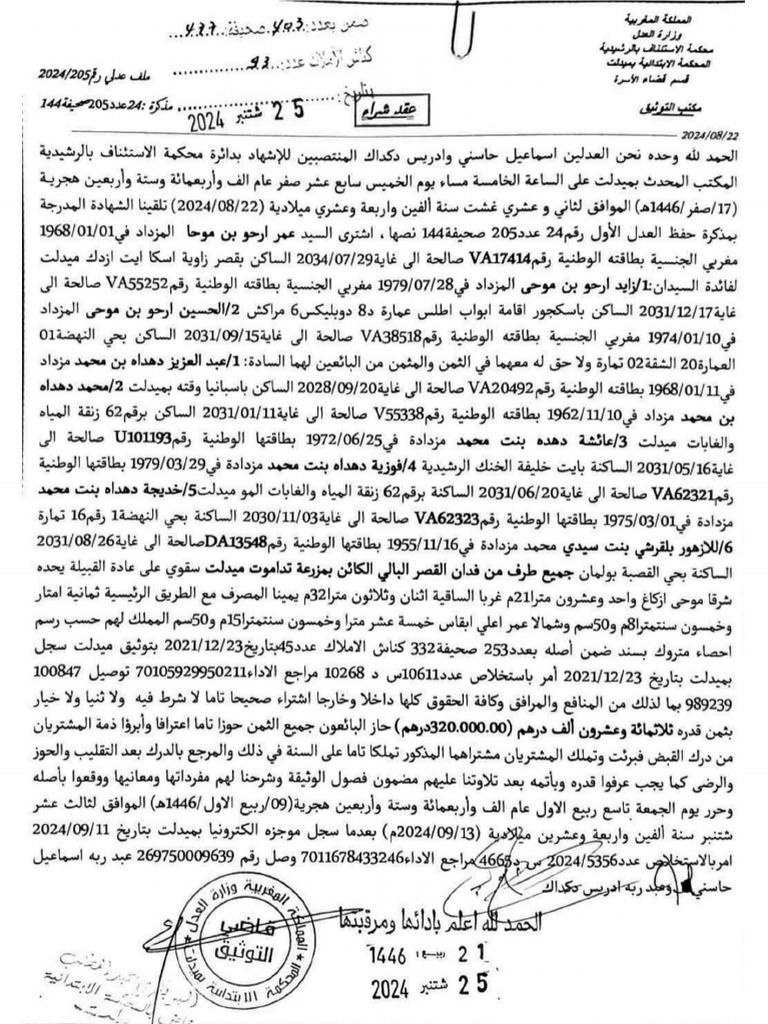 المملكة المغربية
وزارة العدل
محكمة الاستئناف بالرشيدية
المحكمة الابتدائية بميدلت
قسم قضاء الأسرة
مكتب التوثيق
ضمن بعدد: 403 صحيفة: 437
كناش الأملاك عدد: 93
بتاريخ: 25 شتنبر 2024
ملف عدلي رقم 2024/205
مذكرة :24عدد205صحيفة144
عقد شراء
2024/08/22
الحمد لله وحده نحن العدلين اسماعيل حاسني وادريس دكداك المنتصبين للإشهاد بدائرة محكمة الاستئناف بالرشيدية
المكتب المحدث بميدلت على الساعة الخامسة مساء يوم الخميس سابع عشر صفر عام الف وأربعمائة وستة وأربعين هجرية
(17/صفر/1446هـ) الموافق لثاني و عشري غشت سنة ألفين واربعة وعشري ميلادية (2024/08/22) تلقينا الشهادة المدرجة
بمذكرة حفظ العدل الأول رقم24 عدد205 صحيفة144 نصها، اشترى السيد عمر ارحو بن موحا المزداد في1968/01/01
مغربي الجنسية بطاقته الوطنية رقمVA17414 صالحة الى غاية2034/07/29 الساكن بقصر زاوية اسكا ايت ازدك ميدلت
لفائدة السيدان:1/زايد ارحو بن موحى المزداد في1979/07/28 مغربي الجنسية بطاقته الوطنية رقم VA55252 صالحة الى
غاية2031/12/17 الساكن باسكجور اقامة ابواب اطلس عمارة د8 دوبليكس6 مراكش 2/الحسين ارحو بن موحى المزداد
في1974/01/10 مغربي الجنسية بطاقته الوطنية رقمVA38518 صالحة الى غاية2031/09/15 الساكن بحي النهضة01
العمارة20 الشقة02 تمارة ولا حق له معهما في الثمن والمثمن من البائعين لهما السادة: 1/عبد العزيز دهداه بن محمد مزداد
في1968/01/11 بطاقته الوطنية رقمVA20492 صالحة الى غاية2028/09/20 الساكن باسبانيا وقته بميدلت 2/محمد دهداه
بن محمد مزداد في1962/11/10 بطاقته الوطنية رقمV55338 صالحة الى غاية2031/01/11 الساكن برقم62 زنقة المياه
والغابات ميدلت 3/عائشة دهده بنت محمد مزدادة في1972/06/25 بطاقتها الوطنية رقمU101193 صالحة الى
غاية2031/05/16 الساكنة بايت خليفة الخنك الرشيدية 4/فوزية دهداه بنت محمد مزدادة في1979/03/29 بطاقتها الوطنية
رقمVA62321 صالحة الى غاية2031/06/20 الساكنة برقم62 زنقة المياه والغابات المو ميدلت5/خديجة دهداه بنت محمد
مزدادة في1975/03/01 بطاقتها الوطنية رقمVA62323 صالحة الى غاية2030/11/03 الساكنة بحي النهضة1 رقم16 تمارة
6/للازهور بلقرشي بنت سيدي محمد مزدادة في1955/11/16 بطاقتها الوطنية رقمDA13548صالحة الى غاية2031/08/26
الساكنة بحي القصبة بولمان جميع طرف من فدان القصر البالي الكائن بمزرعة تداموت ميدلت سقوي على عادة القبيلة يحده
شرقا موحى ازكاغ واحد وعشرون مترا21م غربا الساقية اثنان وثلاثون مترا32م يمينا المصرف مع الطريق الرئيسية ثمانية امتار
وخمسون سنتمترا8م و50سم وشمالا عمر اعلي ابقاس خمسة عشر مترا وخمسون سنتمترا15م و50سم المملك لهم حسب رسم
احصاء متروك بسند ضمن أصله بعدد253 صحيفة332 كناش الاملاك عدد45بتاريخ2021/12/23 بتوثيق ميدلت سجل
بميدلت بتاريخ 2021/12/23 أمر باستخلاص عدد10611س د 10268 مراجع الاداء70105929950211 توصيل 100847
989239 بما لذلك من المنافع والمرافق وكافة الحقوق كلها داخلا وخارجا اشتراء صحيحا تاما لا شرط فيه ولا ثنيا ولا خيار
بثمن قدره ثلاثمائة وعشرون ألف درهم (320.000.00درهم) حاز البائعون جميع الثمن حوزا تاما اعترافا وأبرؤا ذمة المشتريان
من درك القبض فبرئت وتملك المشتريان مشتراهما المذكور تملكا تاما على السنة في ذلك والمرجع بالدرك بعد التقليب والحوز
والرضى كما يجب عرفوا قدره وبأتمه بعد تلاوتنا عليهم مضمون فصول الوثيقة وشرحنا لهم مفرداتها ومعانيها ووقعوا بأصله
وحرر يوم الجمعة تاسع ربيع الاول عام الف وأربعمائة وستة وأربعين هجرية(09/ربيع الاول/1446هـ) الموافق لثالث عشر
شتنبر سنة ألفين واربعة وعشرين ميلادية (2024/09/13م) بعدما سجل موجزه الكترونيا بميدلت بتاريخ 2024/09/11
امربالاستخلاص عدد2024/5356 س د4665 مراجع الاداء7011678433246 وصل رقم 269750009639 عبد ربه اسماعيل
حاسني وعبد ربه ادريس دكداك
الحمد لله اعلم بادائها ومرقبتها
21 ربيع 1 1446
25 شتنبر 2024
المملكة المغربية وزارة العدل
قاضي التوثيق
المحكمة الابتدائية بميدلت